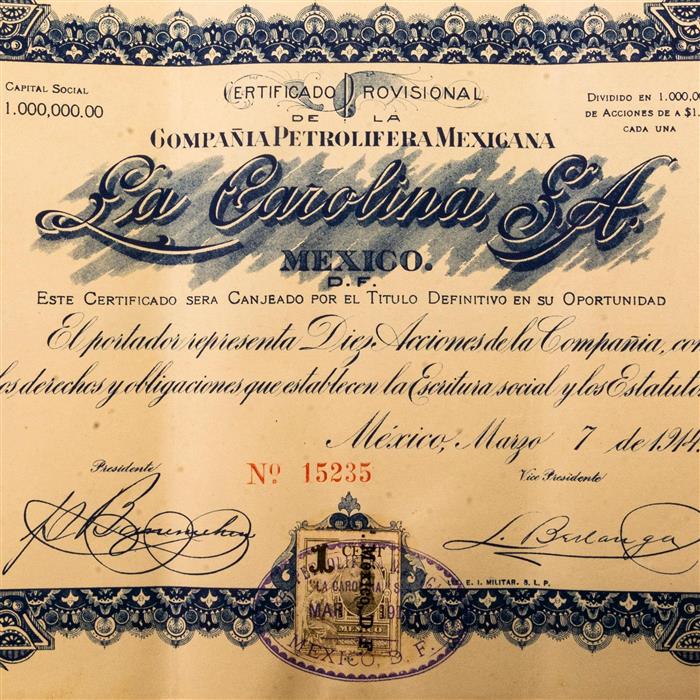 CAPITAL SOCIAL
1.000,000.00
CERTIFICADO PROVISIONAL
DE LA
COMPAÑIA PETROLIFERA MEXICANA
DIVIDIDO EN 1.000,00
DE ACCIONES DE A $1.
CADA UNA
La Carolina, S.A.
MEXICO.
D.F.
ESTE CERTIFICADO SERA CANJEADO POR EL TITULO DEFINITIVO EN SU OPORTUNIDAD
El portador representa Diez Acciones de la Compañia, con
los derechos y obligaciones que establecen la Escritura social y los Estatutos
México, Marzo 7 de 1914.
Presidente
Nº 15235
Vice Presidente
L. Berlanga
E. I. MILITAR. S. L. P.
1 CENT
México, D. F.
"LA CAROLINA, S.
MAR
MEXICO
MEXICO, D. F.